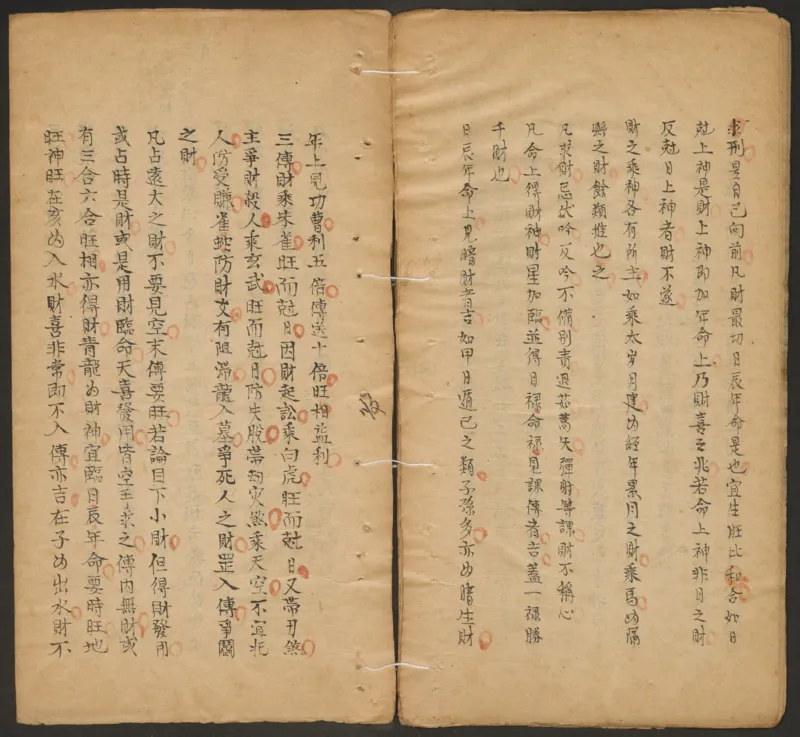 求刑是自己向前凡財最切日辰年命是也宜生旺比和合如日
尅上神是財上神即加年命上乃財喜之兆若命上神非日之財
反尅日上神者財不遂
財之乘神各有所主如乘太岁月建為經年累月之財乘馬為隔
縣之財餘類推也之
凡求財忌伏吟反吟不備別責退茹蒿矢彈射等課財不稱心
凡命上得財神財星加臨並得日禄命禄見課傳者吉蓋一禄勝
千財也
日辰年命上見暗財者吉如甲日遁己之類子孫多亦為暗生財
年上見功曹利五倍傳送十倍旺相益利
三傳財乘朱雀旺而尅日因財起訟乘白虎旺而尅日又帶丑煞
主爭財殺人乘玄武旺而尅日防失脫帶劫灾煞乘天空不宜托
人防受賺雀蛇防財文有阻滞龍入墓爭死人之財罡入傳爭鬭
之財
凡占遠大之財不要見空末傳要旺若論目下小財但得財發用
或占時是財或是用財臨命天喜發用皆空主求之傳内無財或
有三合六合旺相亦得財青龍為財神宜臨日辰年命要時旺地
旺神旺在亥為入水財喜非常即不入傳亦吉在子為出水財不